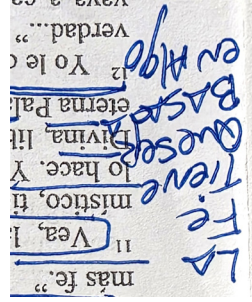 más fe.”
11 Vea,
místico,
lo hace. Y
Divina,
eterna
12 Yo le
verdad...”
LA
Fe
TIENE
QUE SER
BASADA
en Algo